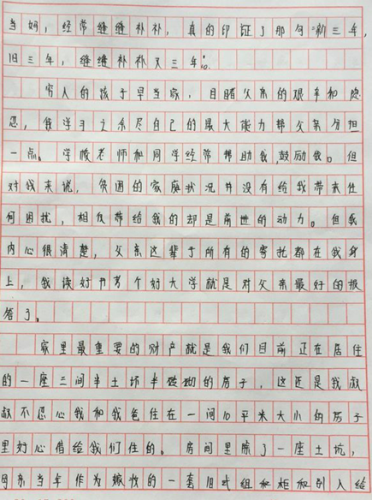 当奶，经常缝缝补补，真的印证了那句“新三年，
旧三年，缝缝补补又三年”。
穷人的孩子早当家，目睹父亲的艰辛和
，我学习之余尽自己的最大能力帮父亲分担
一点。学校老师和同学经常帮助我，鼓励我。但
对我来说，贫困的家庭状况并没有给我带来任
何困扰，相反带给我的却是前进的动力。但我
内心很清楚，父亲这辈子所有的寄托都在我身
上，我读好书考个好大学就是对父亲最好的报
答了。
家里最重要的财产就是我们目前正在居住
的一座三间半土坯半砖的房子，这还是我叔
叔不忍心我和我爸住在一间10平米大小的房子
里好心借给我们住的。房间里除了一座土炕，
当年作为嫁妆的一套旧式组和柜和别人给